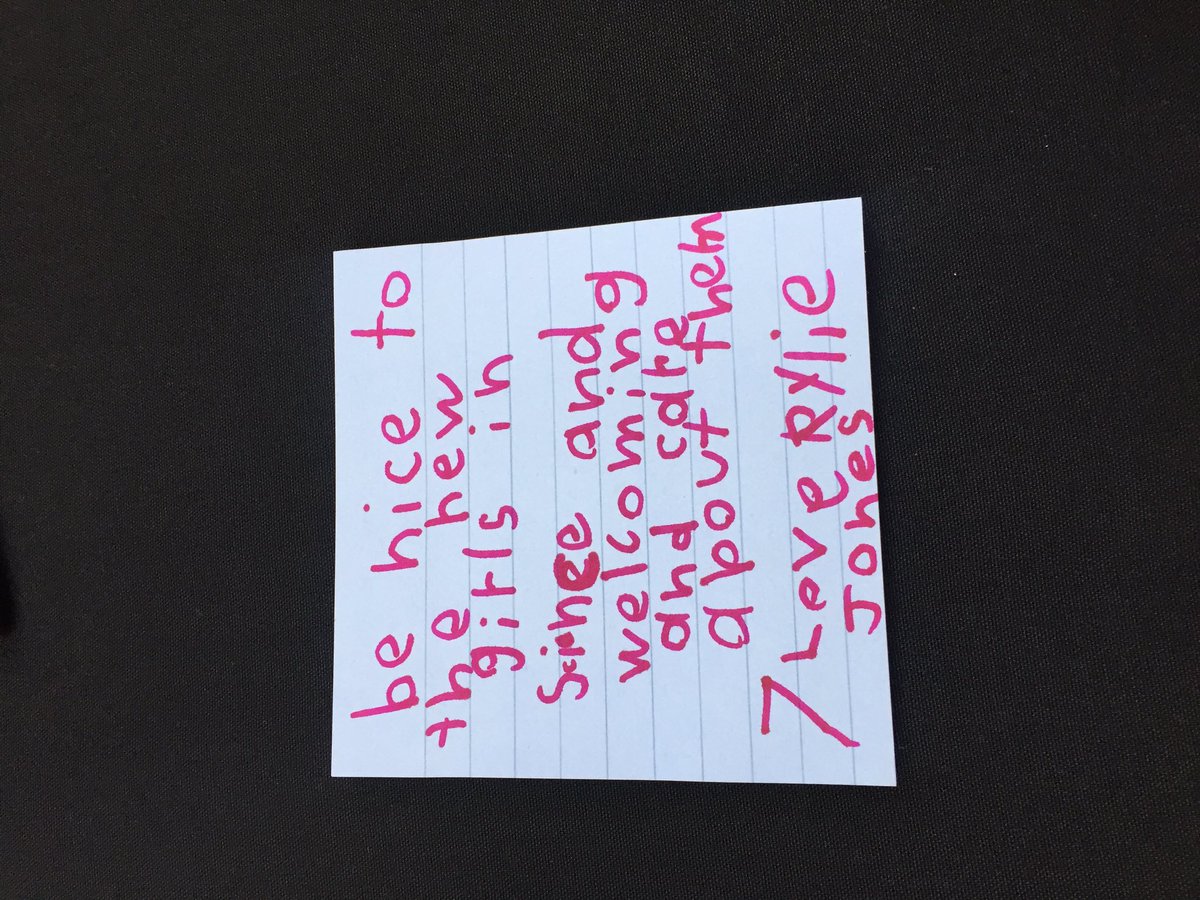 be nice to
the new
girls in
Science and
welcoming
and care
about them
Love Rylie
7 Jones